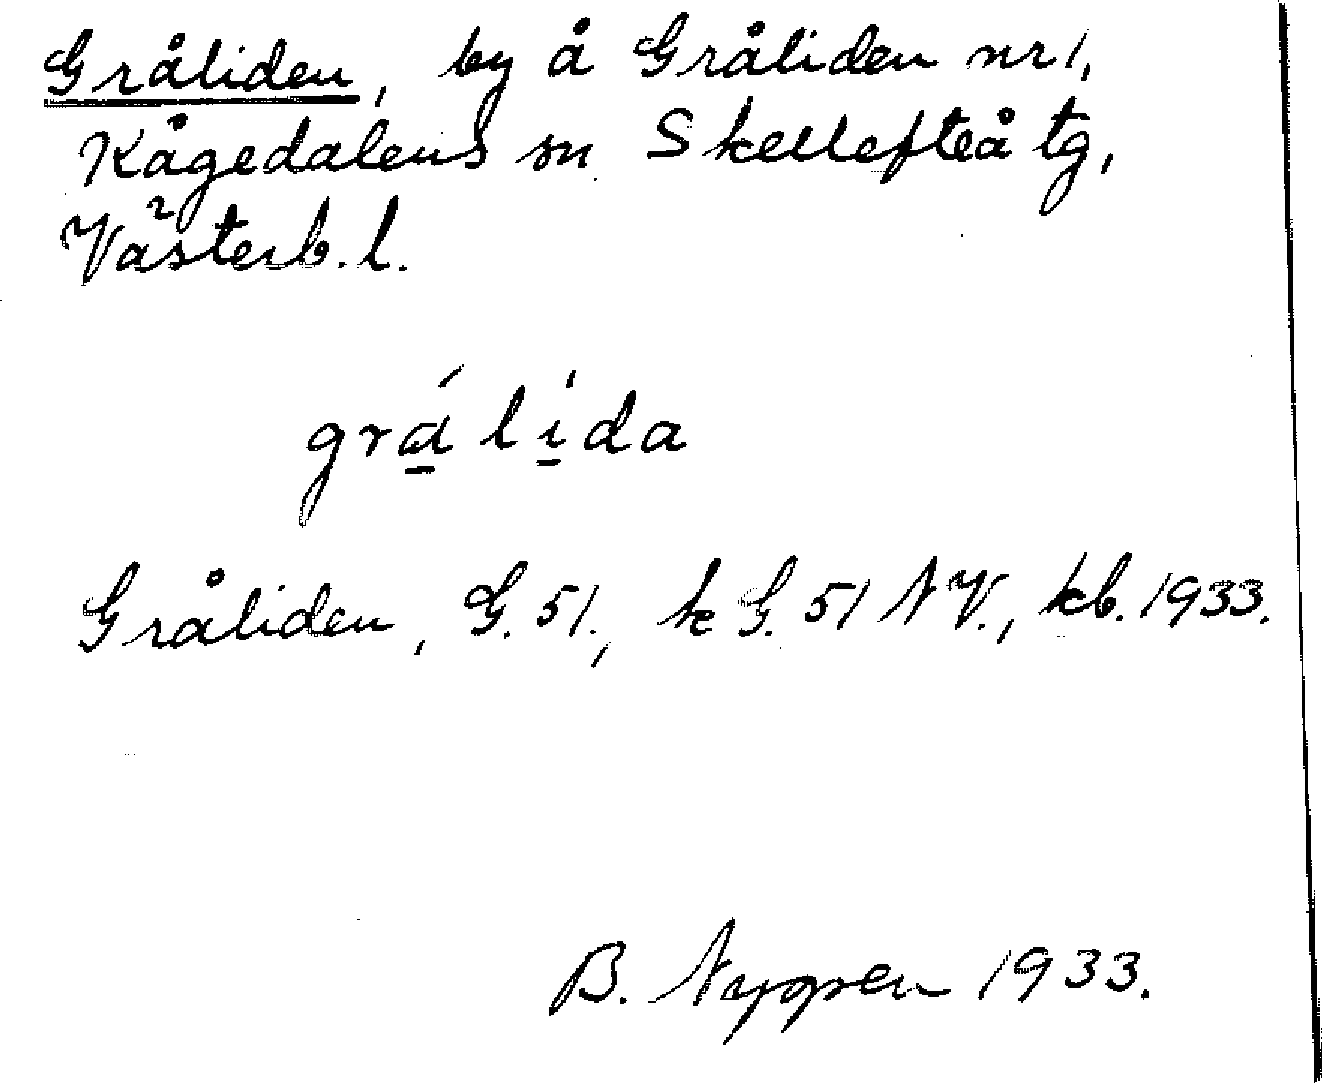 Gråliden, by å Gråliden nr 1,
Kågedalens sn Skellefteå tg,
Västerb. l.
grá̱ lí̱da
Gråliden, G. 51., k G. 51 NV., kb. 1933.
B. Nygren 1933.